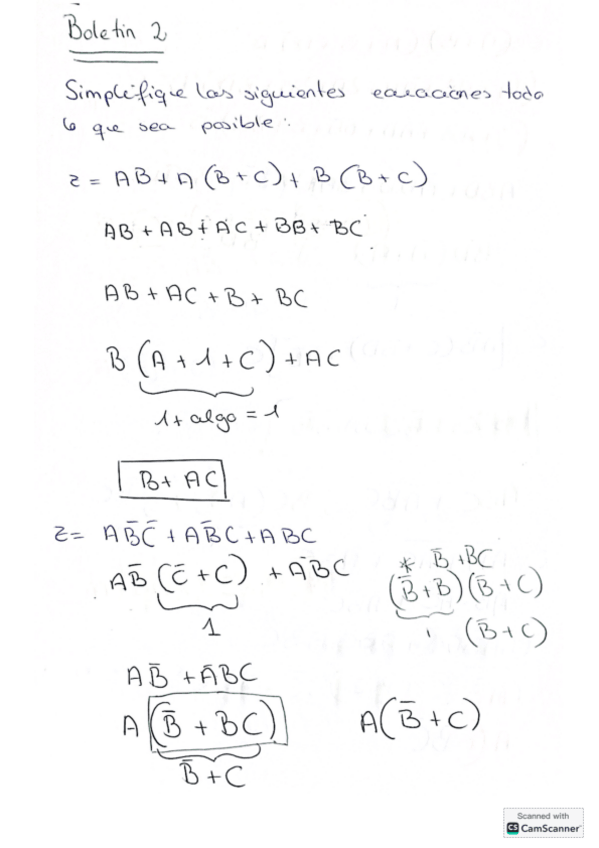 Boletín 2
Simplifique las siguientes ecuaciones todo
lo que sea posible:
z = AB + A (B + C) + B (B + C)
AB + AB + AC + BB + BC
AB + AC + B + BC
B (A + 1 + C) + AC
1 + algo = 1
B + AC
Z = AB̄C̄ + AB̄C + ABC
AB̄ (C̄ + C) + ABC
1
* B̄ + BC
(B̄ + B)(B̄ + C)
1 (B̄ + C)
AB̄ + ABC
A (B̄ + BC)
B̄ + C
A(B̄ + C)
Scanned with
CS CamScanner